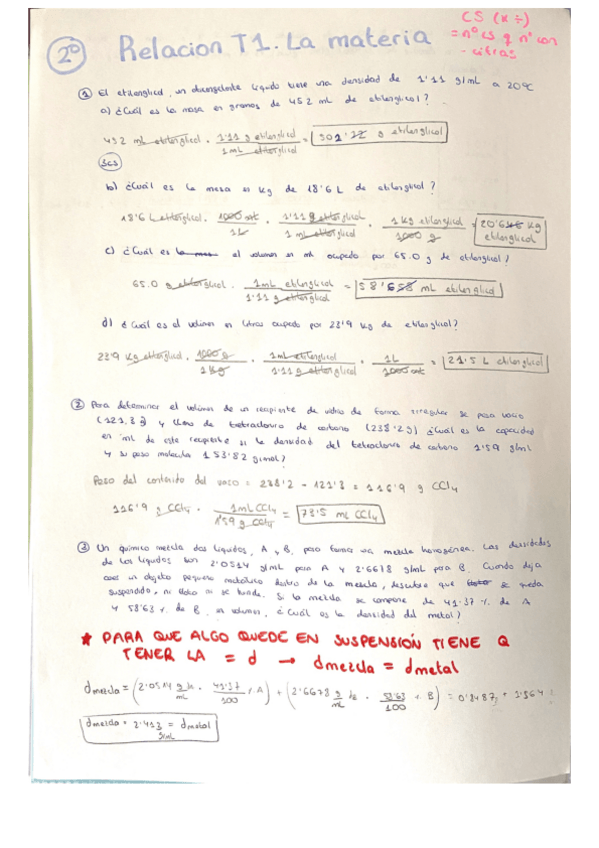 CS (x ÷)
= nº CS q nº con
- cifras
2º Relacion T1. La materia
① El etilenglicol, un anticongelante líquido tiene una densidad de 1'11 g/mL a 20ºC
a) ¿Cuál es la masa en gramos de 452 mL de etilenglicol?
452 mL etilenglicol · 1'11 g etilenglicol / 1 mL etilenglicol = 501'72 g etilenglicol
3cs
b) ¿Cuál es la masa en kg de 18'6 L de etilenglicol?
18'6 L etilenglicol · 1000 mL / 1L · 1'11 g etilenglicol / 1 mL etilenglicol · 1 kg etilenglicol / 1000 g = 20'646 kg
etilenglicol
c) ¿Cuál es la masa el volumen en mL ocupado por 65.0 g de etilenglicol?
65.0 g etilenglicol · 1mL etilenglicol / 1'11 g etilenglicol = 58'558 mL etilenglicol
d) ¿Cuál es el volumen en litros ocupado por 23'9 kg de etilenglicol?
23'9 kg etilenglicol · 1000 g / 1 kg · 1mL etilenglicol / 1'11 g etilenglicol · 1L / 1000 mL = 21'5 L etilenglicol
② Para determinar el volumen de un recipiente de vidrio de forma irregular se pesa vacio
(121,3 g) y lleno de tetracloruro de carbono (238'2g) ¿Cuál es la capacidad
en mL de este recipiente si la densidad del tetracloruro de carbono 1'59 g/ml
y su peso molecular 153'82 g/mol?
Peso del contenido del vaso = 238'2 - 121'3 = 116'9 g CCl4
116'9 g CCl4 · 1mL CCl4 / 1'59 g CCl4 = 73'5 mL CCl4
③ Un químico mezcla dos líquidos, A y B, para formar una mezcla homogénea. Las densidades
de los líquidos son 2'0514 g/mL para A y 2'6678 g/mL para B. Cuando deja
caer un objeto pequeño metálico dentro de la mezcla, descubre que se queda
suspendido, ni flota ni se hunde. Si la mezcla se compone de 41'37 % de A
y 58'63 % de B, en volumen, ¿Cuál es la densidad del metal?
* PARA QUE ALGO QUEDE EN SUSPENSIÓN TIENE Q
TENER LA = d → dmezcla = dmetal
dmezcla = (2'0514 g/mL · 41'37/100 % A) + (2'6678 g/mL · 58'63/100 % B) = 0'8487 + 1'564 =
dmezcla = 2'413 = dmetal
g/mL